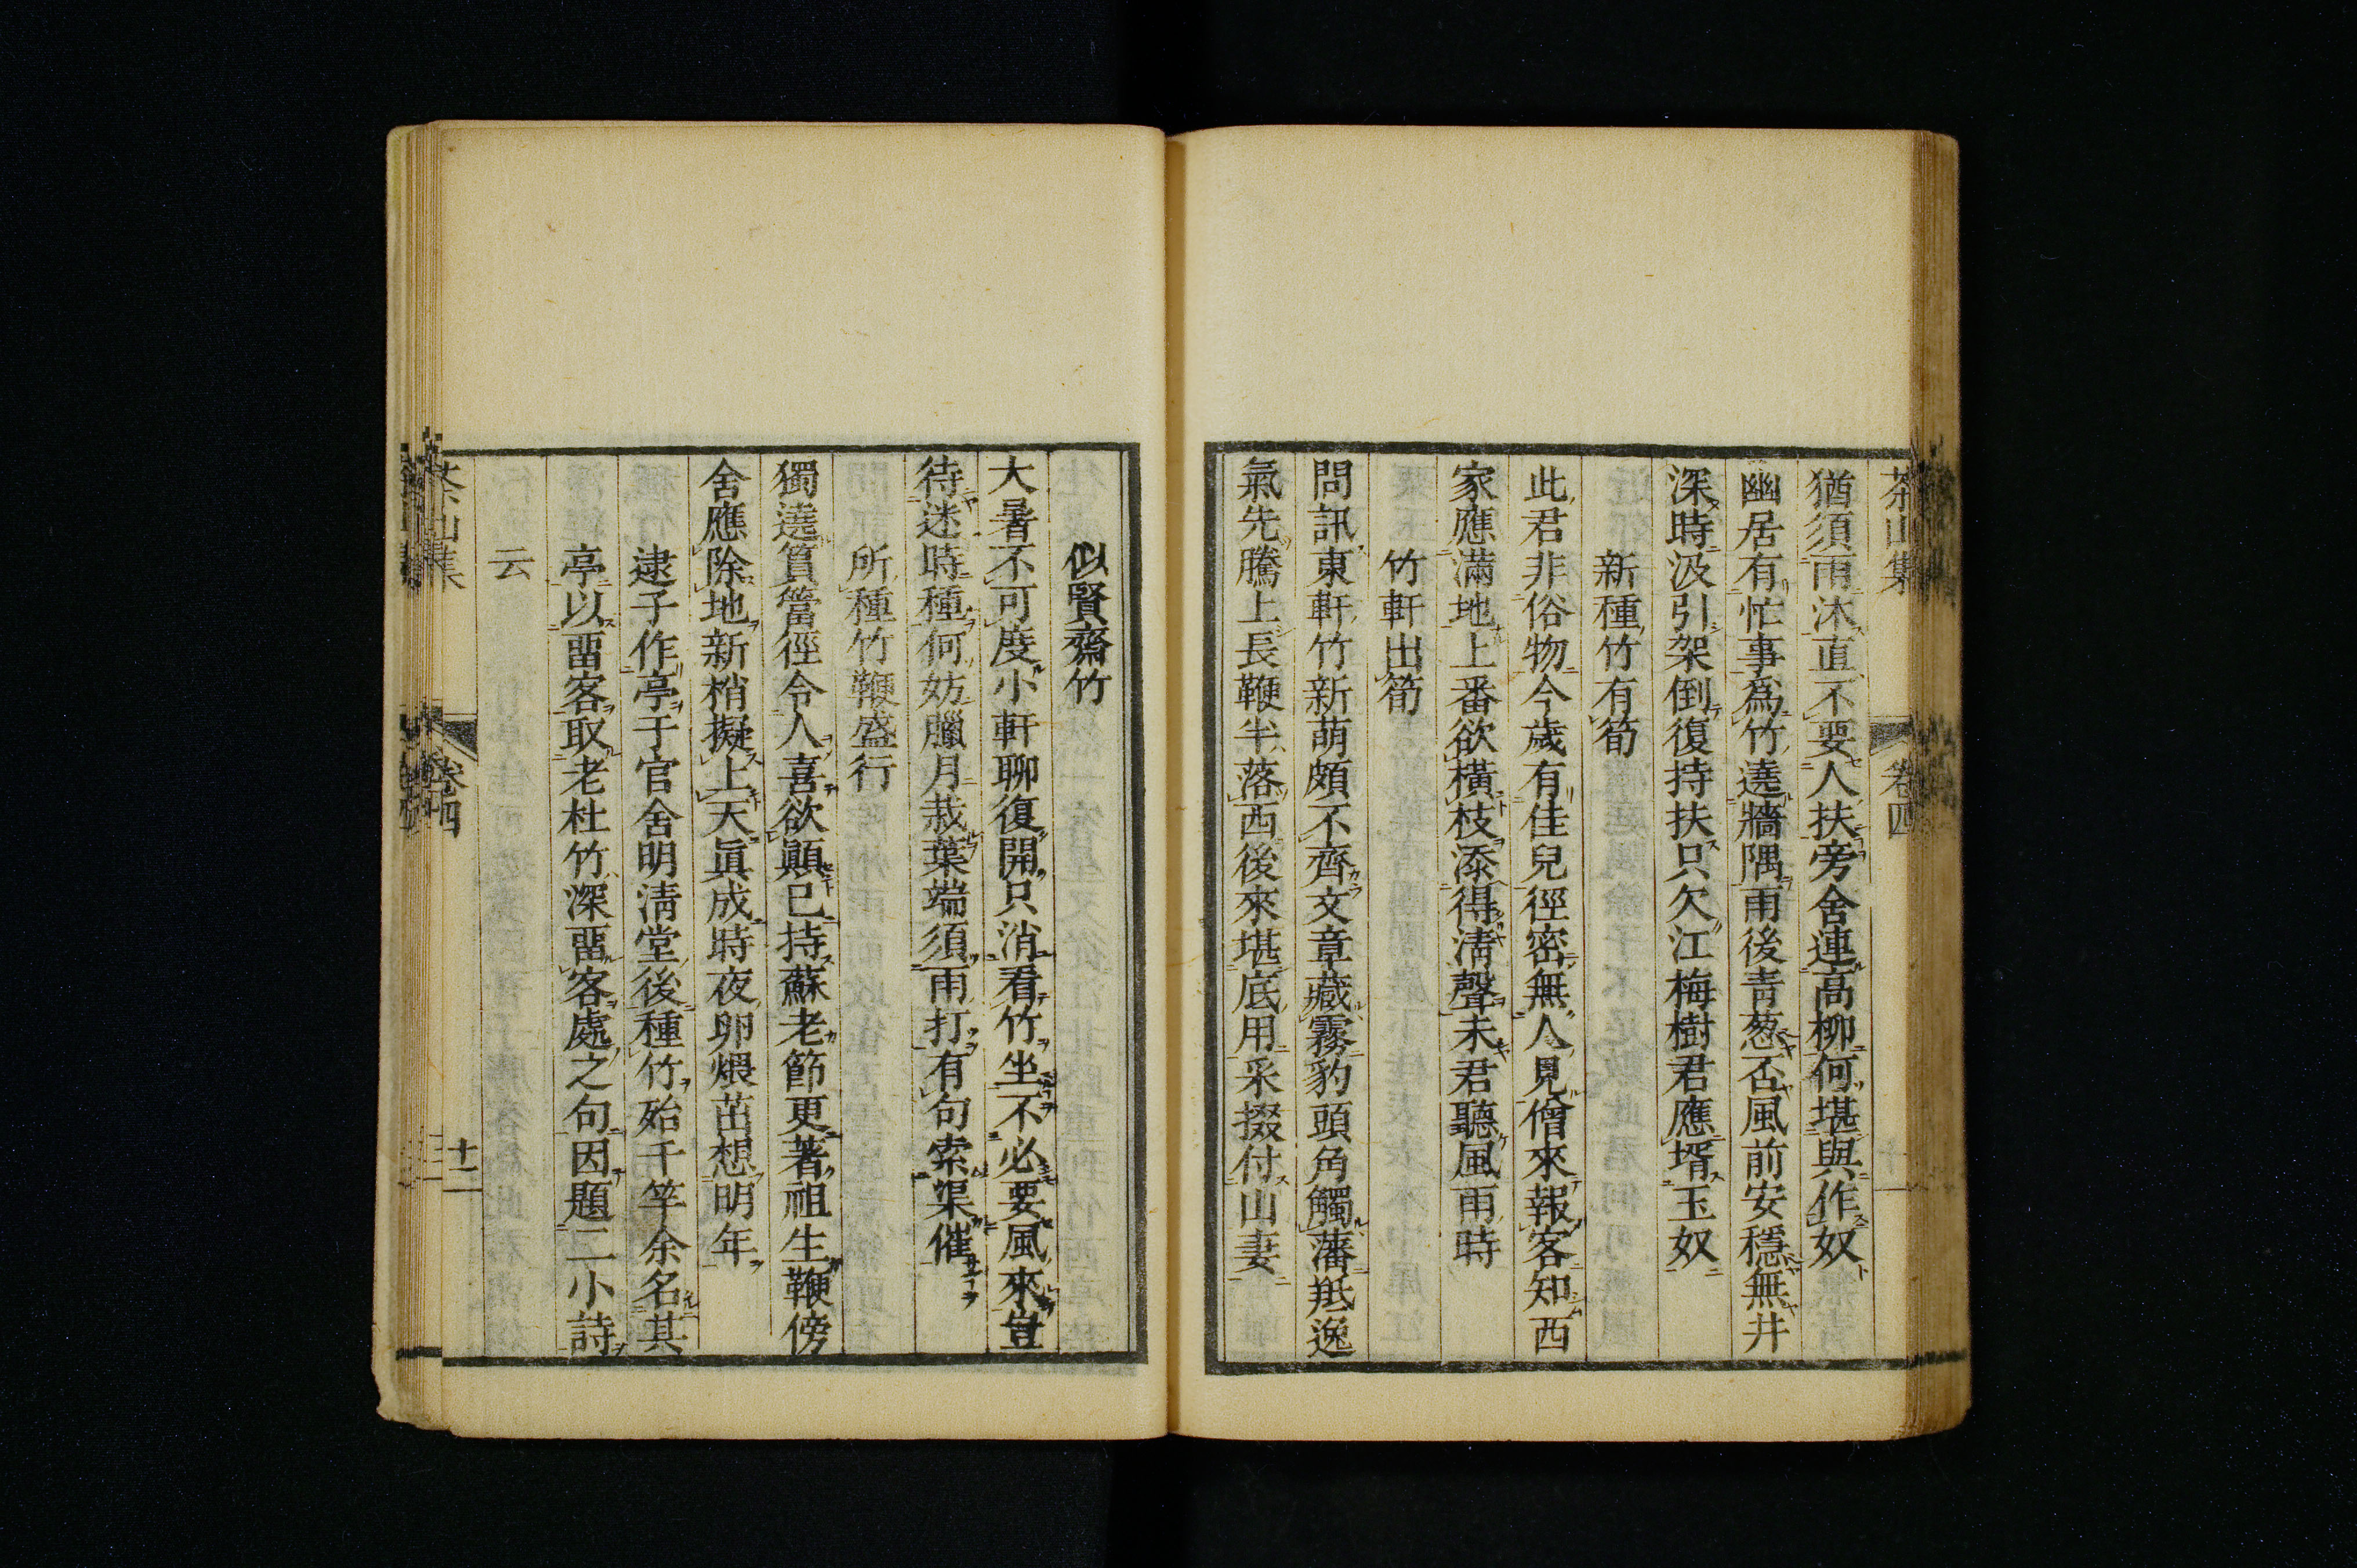 茶山集 卷四
猶須雨沐直不要人扶旁舍連高柳何堪與作奴
幽居有忙事爲竹遶牆隅雨後青葱否風前安穩無井
深時汲引架倒復持扶只欠江梅樹君應壻玉奴
新種竹有筍
此君非俗物今歲有佳兒徑密無人見僧來報客知西
家應滿地上番欲橫枝添得清聲未君聽風雨時
竹軒出筍
問訊東軒竹新萌頗不齊文章藏霧豹頭角觸藩羝逸
氣先騰上長鞭半落西後來堪底用采掇付山妻
似賢齋竹
大暑不可度小軒聊復開只消看竹坐不必要風來豈
待迷時種何妨臘月栽葉端須雨打有句索渠催
所種竹鞭盛行
獨遶篔簹徑令人喜欲顚已持蘇老節更著祖生鞭傍
舍應除地新梢擬上天眞成時夜卵煨茁想明年
逮子作亭于官舍明清堂後種竹殆千竿余名其
亭以畱客取老杜竹深畱客處之句因題二小詩
云
茶山集 卷四 十二